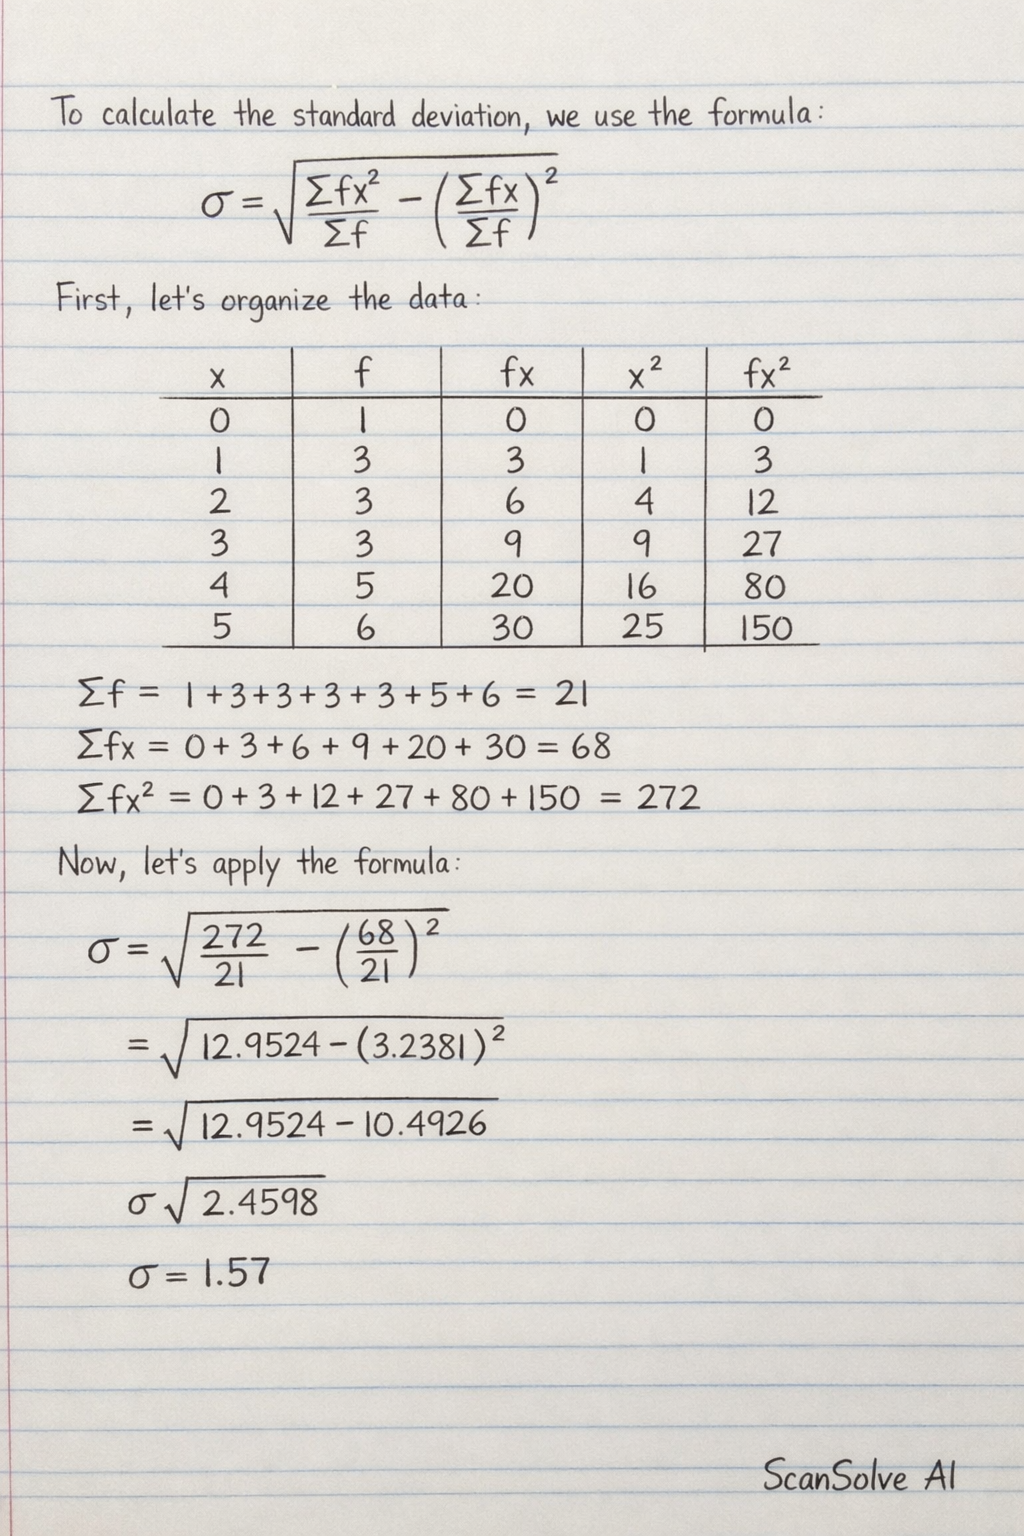 To calculate the standard deviation, we use the formula:
σ = √(Σfx²/Σf − (Σfx/Σf)²)
First, let's organize the data:
x f fx x² fx²
0 1 0 0 0
1 3 3 1 3
2 3 6 4 12
3 3 9 9 27
4 5 20 16 80
5 6 30 25 150
Σf = 1+3+3+3+3+5+6 = 21
Σfx = 0+3+6+9+20+30 = 68
Σfx² = 0+3+12+27+80+150 = 272
Now, let's apply the formula:
σ = √(272/21 − (68/21)²)
= √(12.9524 − (3.2381)²)
= √(12.9524 − 10.4926)
σ √2.4598
σ = 1.57
ScanSolve AI